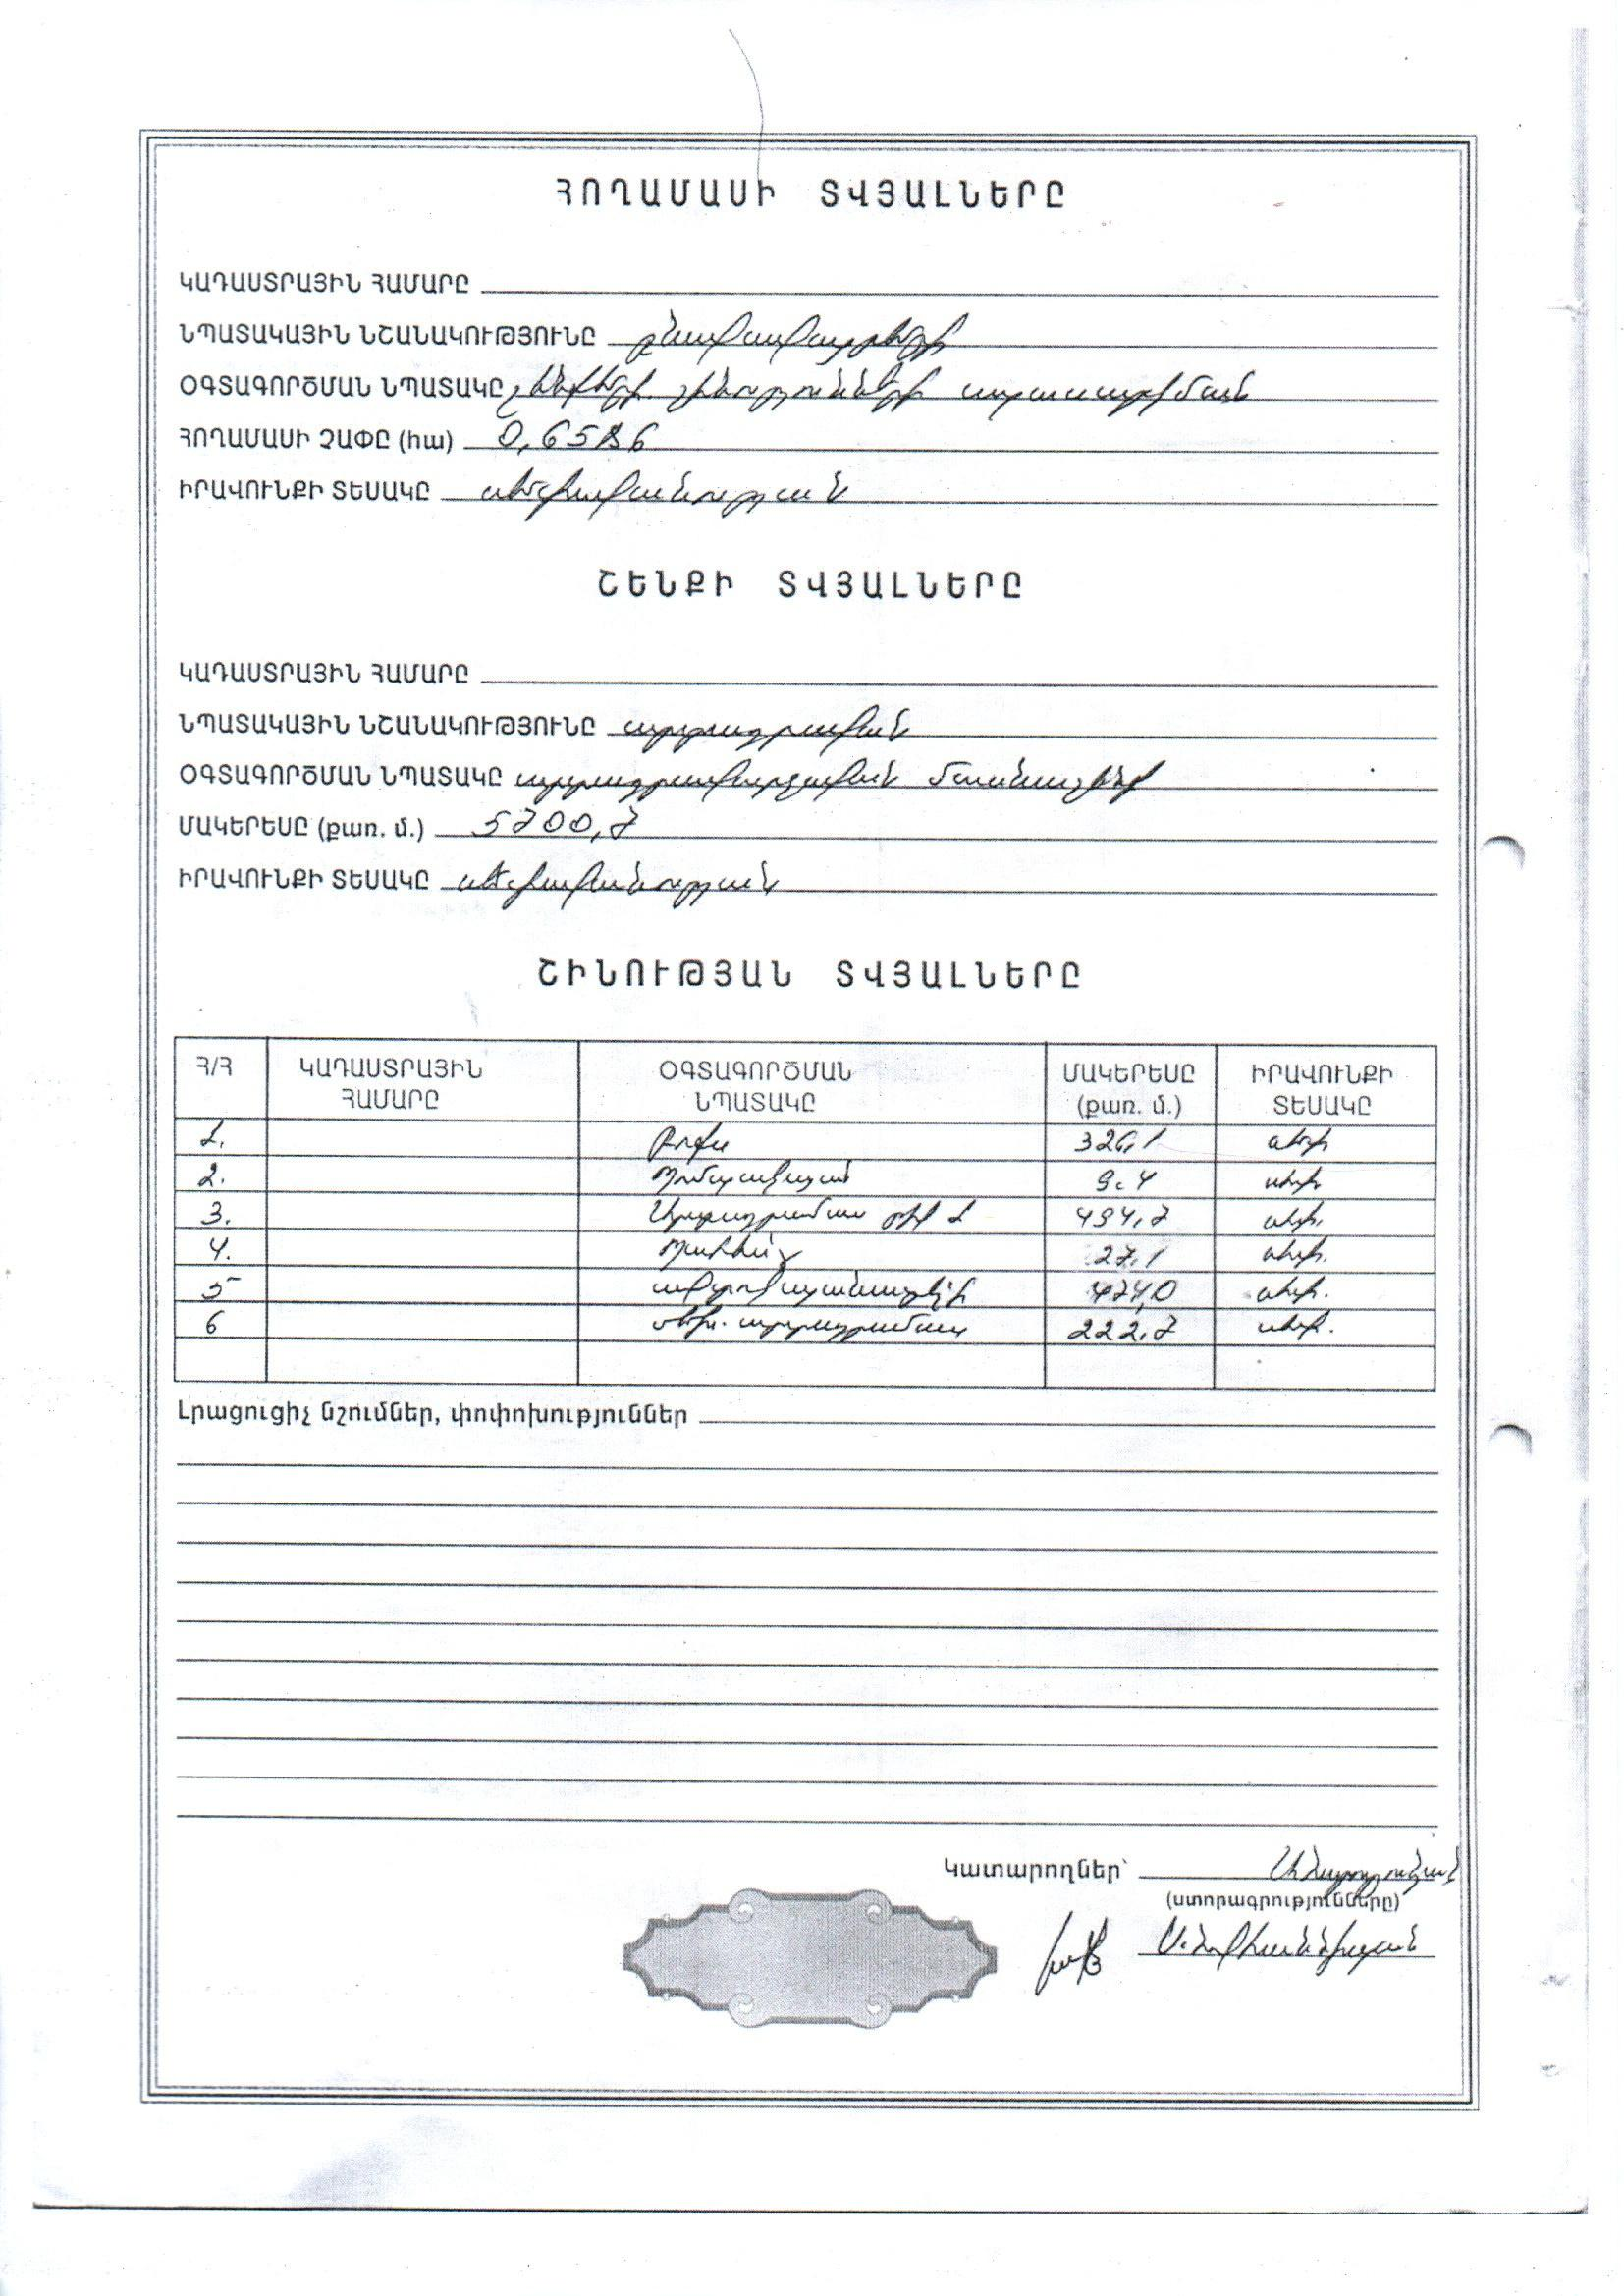 ՀՈՂԱՄԱՍԻ ՏՎՅԱԼՆԵՐԸ
ԿԱԴԱՍՏՐԱՅԻՆ ՀԱՄԱՐԸ
ՆՊԱՏԱԿԱՅԻՆ ՆՇԱՆԱԿՈՒԹՅՈՒՆԸ բնակավայրերի
ՕԳՏԱԳՈՐԾՄԱՆ ՆՊԱՏԱԿԸ շենքերի շինությունների սպասարկման
ՀՈՂԱՄԱՍԻ ՉԱՓԸ (հա)
ԻՐԱՎՈՒՆՔԻ ՏԵՍԱԿԸ սեփականության
ՇԵՆՔԻ ՏՎՅԱԼՆԵՐԸ
ԿԱԴԱՍՏՐԱՅԻՆ ՀԱՄԱՐԸ
ՆՊԱՏԱԿԱՅԻՆ ՆՇԱՆԱԿՈՒԹՅՈՒՆԸ արտադրական
ՕԳՏԱԳՈՐԾՄԱՆ ՆՊԱՏԱԿԸ արտադրավարչական մասնաշենք
ՄԱԿԵՐԵՍԸ (քառ. մ.) 5700,7
ԻՐԱՎՈՒՆՔԻ ՏԵՍԱԿԸ սեփականության
ՇԻՆՈՒԹՅԱՆ ՏՎՅԱԼՆԵՐԸ
Հ/Հ ԿԱԴԱՍՏՐԱՅԻՆ ՀԱՄԱՐԸ ՕԳՏԱԳՈՐԾՄԱՆ ՆՊԱՏԱԿԸ ՄԱԿԵՐԵՍԸ (քառ. մ.) ԻՐԱՎՈՒՆՔԻ ՏԵՍԱԿԸ
1. 326,1 սեփ
2. Պոմպակայան 9.4 սեփ.
3. Արտադրամաս թիվ 1 494,7 սեփ.
4. Պահեստ 27,1 սեփ.
5 ավտոկայանատեղի 474,0 սեփ.
6 մեխ. արտադրամաս 222,7 սեփ.
Լրացուցիչ նշումներ, փոփոխություններ
Կատարողներ՝
(ստորագրությունները)
Ս. Հովհաննիսյան